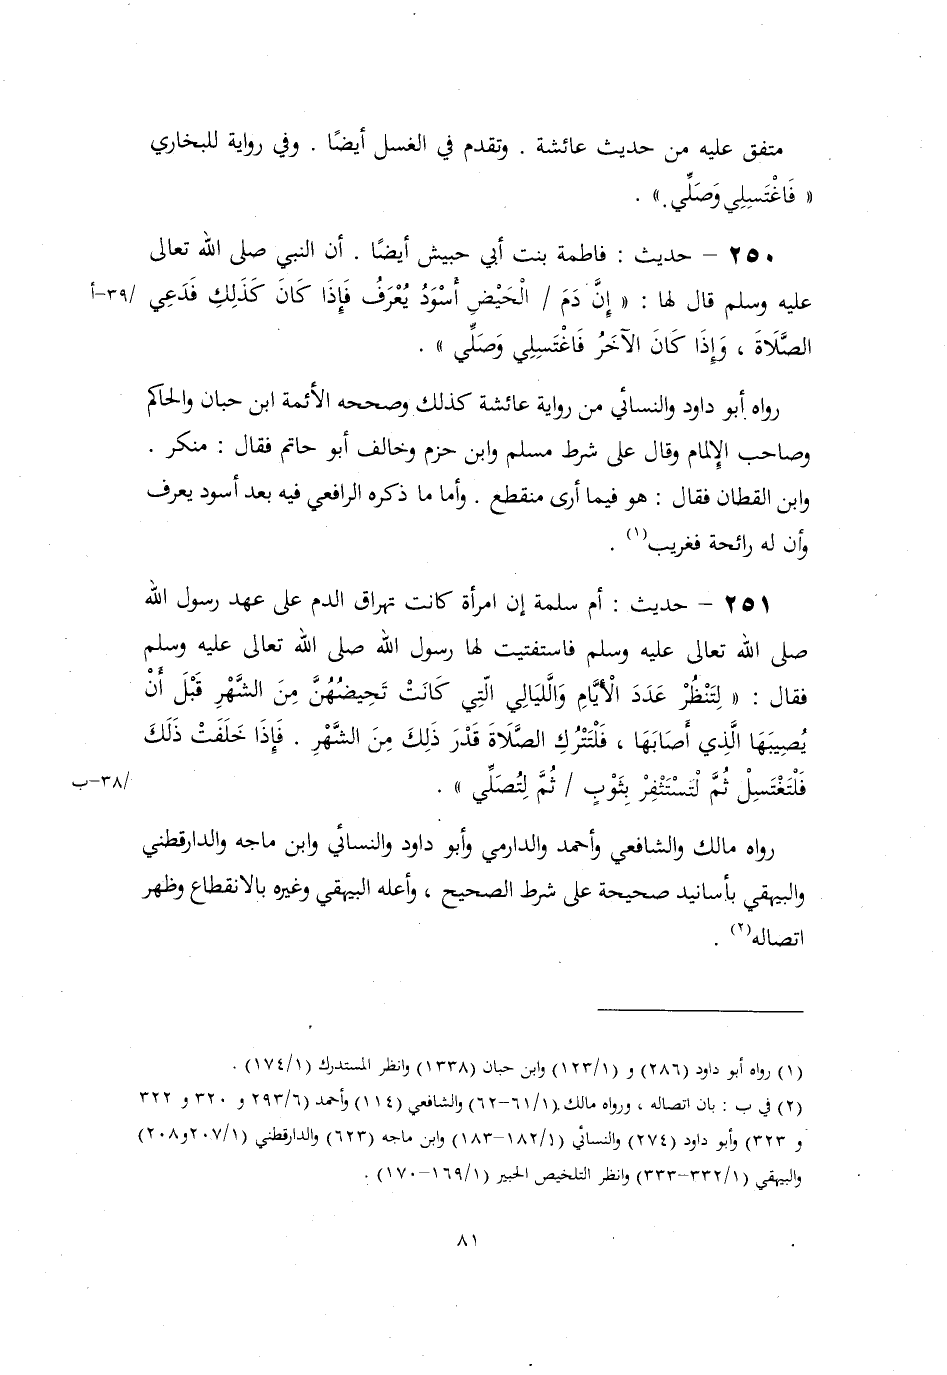 متفق عليه من حديث عائشة . وتقدم في الغسل أيضًا . وفي رواية للبخاري
« فَاغْتَسِلِي وَصَلِّي » .
٢٥٠ – حديث : فاطمة بنت أبي حبيش أيضًا . أن النبي صلى الله تعالى
عليه وسلم قال لها : « إِنَّ دَمَ / الْحَيْضِ أَسْوَدُ يُعْرَفُ فَإِذَا كَانَ كَذَلِكِ فَدَعِي /٣٩-أ
الصَّلَاةَ ، وَإِذَا كَانَ الآخَرُ فَاغْتَسِلِي وَصَلِّي » .
رواه أبو داود والنسائي من رواية عائشة كذلك وصححه الأئمة ابن حبان والحاكم
وصاحب الإلمام وقال على شرط مسلم وابن حزم وخالف أبو حاتم فقال : منكر .
وابن القطان فقال : هو فيما أرى منقطع . وأما ما ذكره الرافعي فيه بعد أسود يعرف
وأن له رائحة فغريب(١) .
٢٥١ – حديث : أم سلمة إن امرأة كانت تهراق الدم على عهد رسول الله
صلى الله تعالى عليه وسلم فاستفتيت لها رسول الله صلى الله تعالى عليه وسلم
فقال : « لِتَنْظُرْ عَدَدَ الْأَيَّامِ وَالَّليَالِي الَّتِي كَانَتْ تَحِيضُهُنَّ مِنَ الشَّهْرِ قَبْلَ أَنْ
يُصِيبَهَا الَّذِي أَصَابَهَا ، فَلْتَتْرُكِ الصَّلَاةَ قَدْرَ ذَلِكَ مِنَ الشَّهْرِ . فَإِذَا خَلَفَتْ ذَلَكَ
فَلْتَغْتَسِلْ ثُمَّ لْتَسْتَثْفِرْ بِثَوْبٍ / ثُمَّ لِتُصَلِّي » . /٣٨-ب
رواه مالك والشافعي وأحمد والدارمي وأبو داود والنسائي وابن ماجه والدارقطني
والبيهقي بأسانيد صحيحة على شرط الصحيح ، وأعله البيهقي وغيره بالانقطاع وظهر
اتصاله(٢) .
(١) رواه أبو داود (٢٨٦) و (١٢٣/١) وابن حبان (١٣٣٨) وانظر المستدرك (١٧٤/١) .
(٢) في ب : بان اتصاله ، ورواه مالك (٦١/١-٦٢) والشافعي (١١٤) وأحمد (٢٩٣/٦ و ٣٢٠ و ٣٢٢
و ٣٢٣) وأبو داود (٢٧٤) والنسائي (١٨٢/١-١٨٣) وابن ماجه (٦٢٣) والدارقطني (٢٠٧/١و٢٠٨)
والبيهقي (٣٣٢/١-٣٣٣) وانظر التلخيص الحبير (١٦٩/١-١٧٠) .
٨١